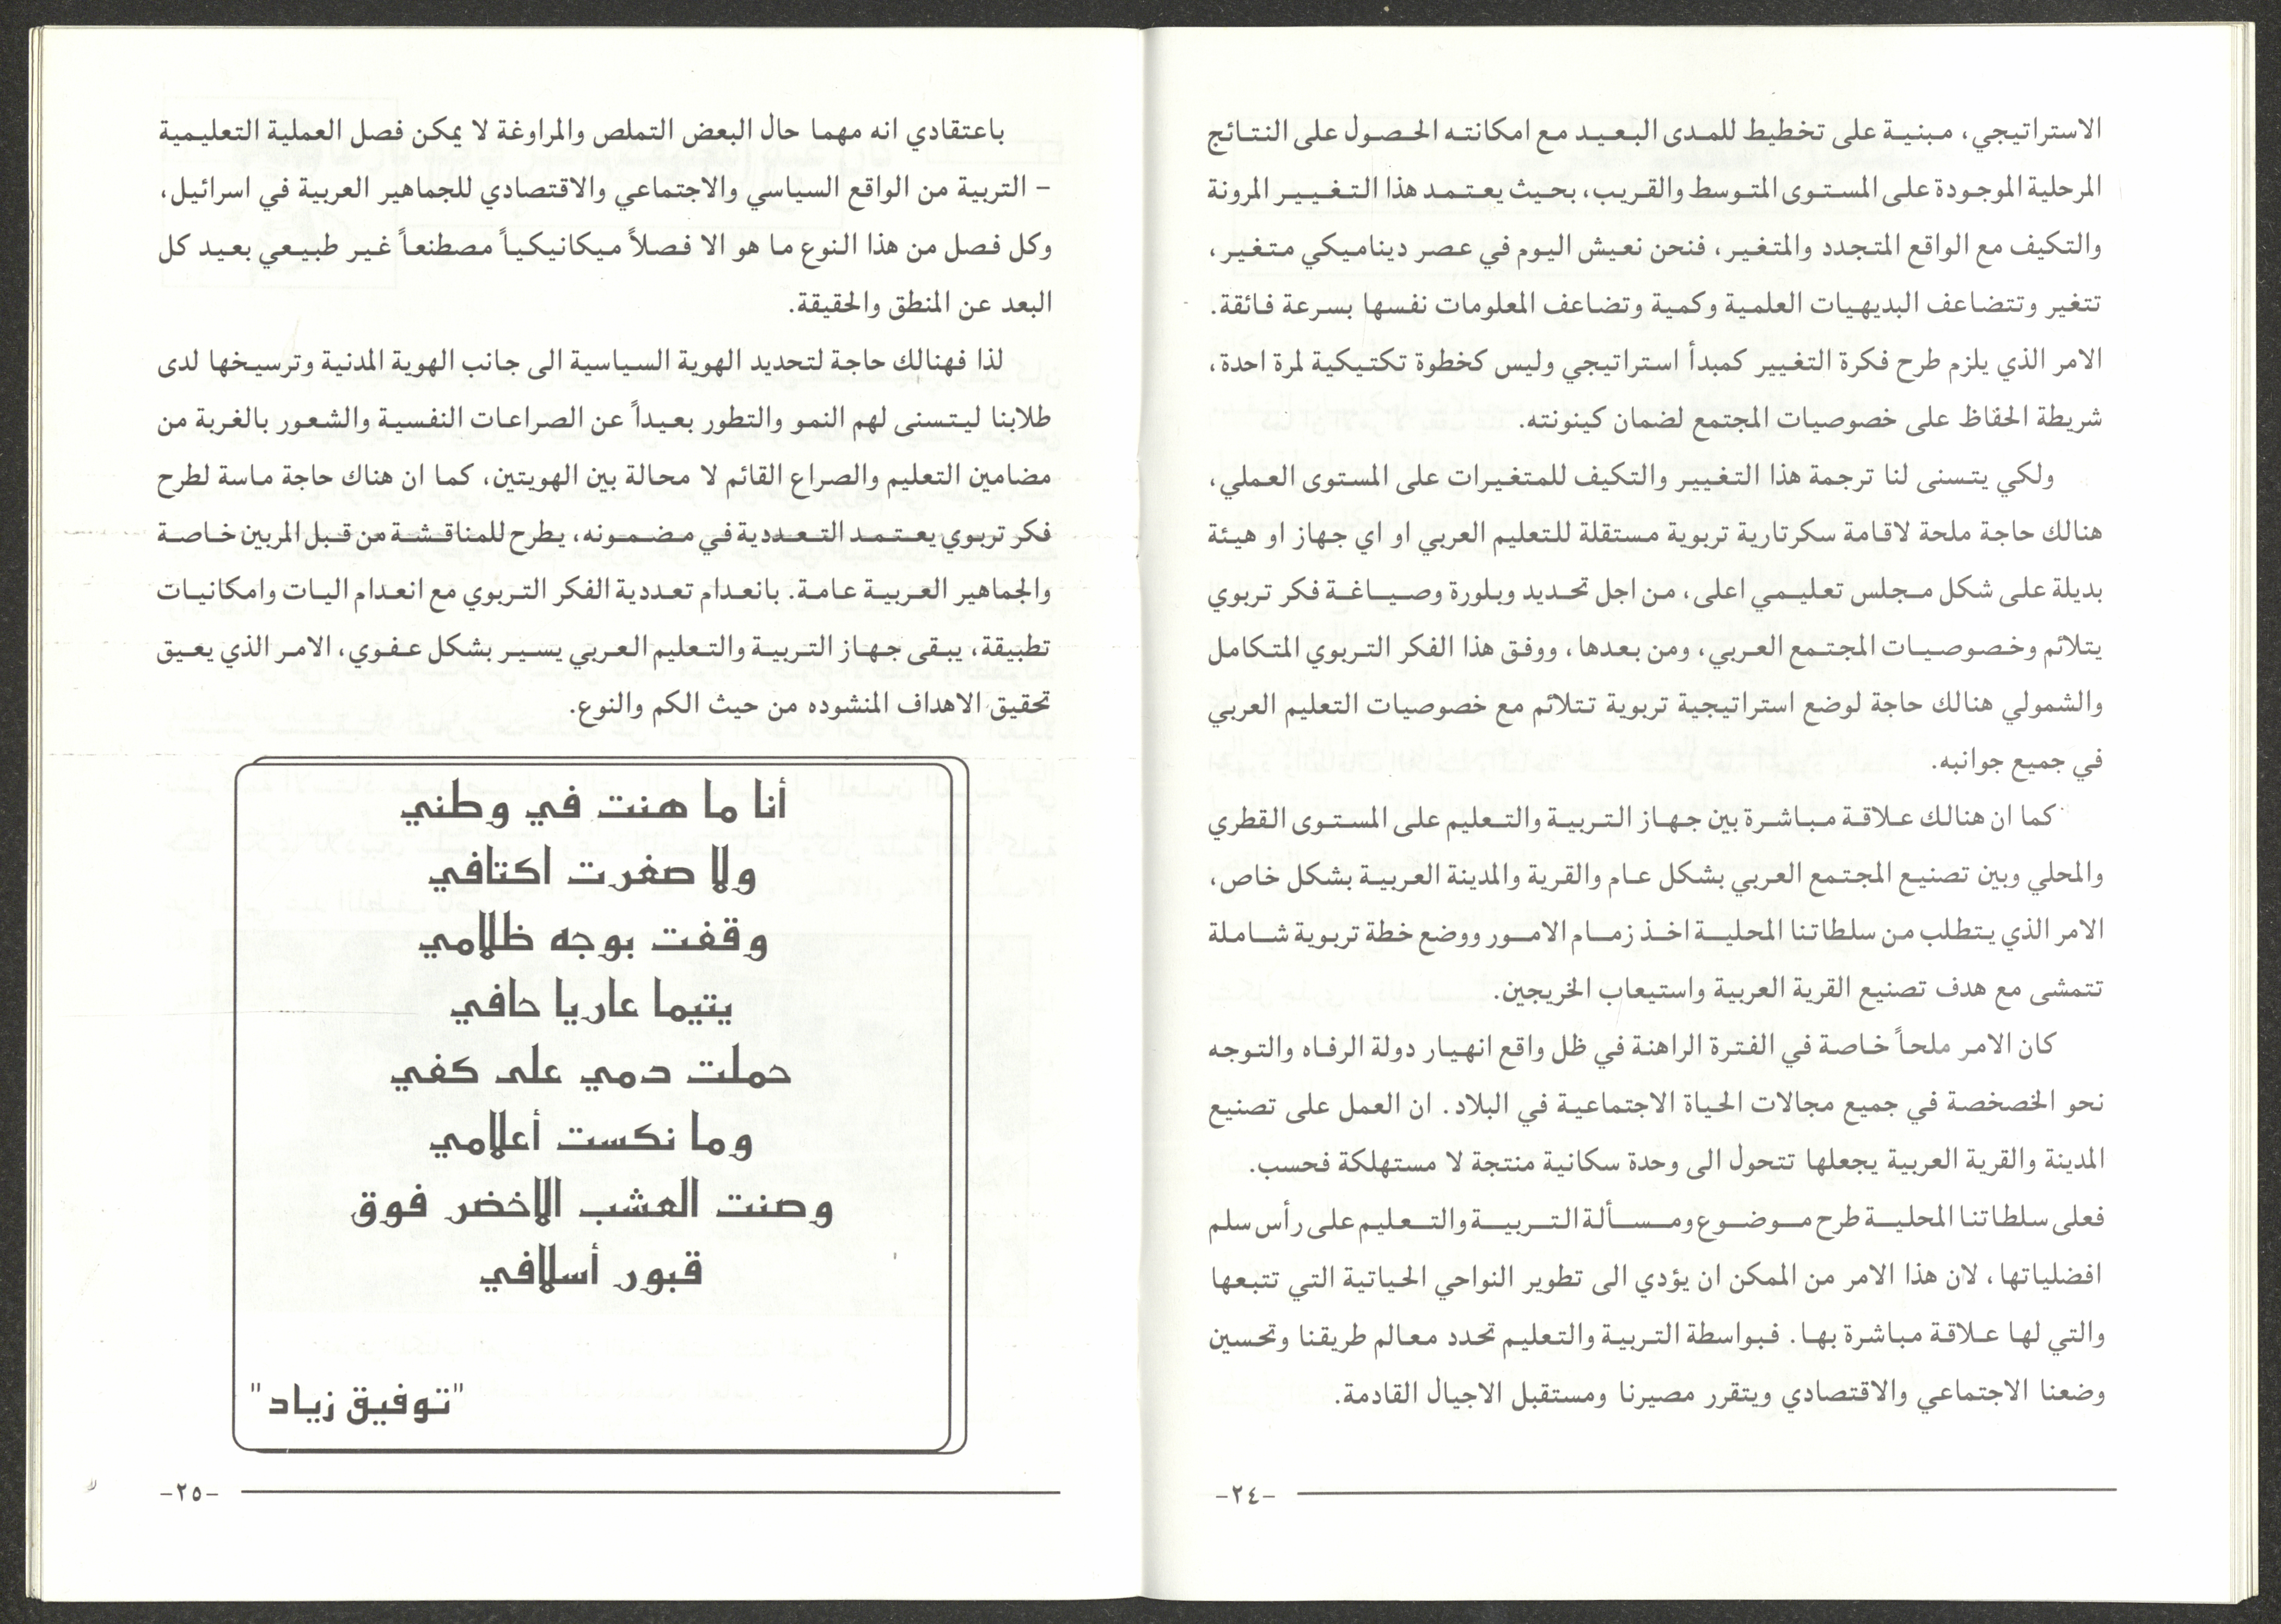 الاستراتيجي، مبنية على تخطيط للمدى البعيد مع امكانته الحصول على النتائج
المرحلية الموجودة على المستوى المتوسط والقريب، بحيث يعتمد هذا التغيير المرونة
والتكيف مع الواقع المتجدد والمتغير، فنحن نعيش اليوم في عصر ديناميكي متغير،
تتغير وتتضاعف البديهيات العلمية وكمية وتضاعف المعلومات نفسها بسرعة فائقة.
الامر الذي يلزم طرح فكرة التغيير كمبدأ استراتيجي وليس كخطوة تكتيكية لمرة احدة،
شريطة الحفاظ على خصوصيات المجتمع لضمان كينونته.
ولكي يتسنى لنا ترجمة هذا التغيير والتكيف للمتغيرات على المستوى العملي،
هنالك حاجة ملحة لاقامة سكرتارية تربوية مستقلة للتعليم العربي او اي جهاز او هيئة
بديلة على شكل مجلس تعليمي اعلى، من اجل تحديد وبلورة وصياغة فكر تربوي
يتلائم وخصوصيات المجتمع العربي، ومن بعدها، ووفق هذا الفكر التربوي المتكامل
والشمولي هنالك حاجة لوضع استراتيجية تربوية تتلائم مع خصوصيات التعليم العربي
في جميع جوانبه.
كما ان هنالك علاقة مباشرة بين جهاز التربية والتعليم على المستوى القطري
والمحلي وبين تصنيع المجتمع العربي بشكل عام والقرية والمدينة العربية بشكل خاص،
الامر الذي يتطلب من سلطاتنا المحلية اخذ زمام الامور ووضع خطة تربوية شاملة
تتمشى مع هدف تصنيع القرية العربية واستيعاب الخريجين.
كان الامر ملحاً خاصة في الفترة الراهنة في ظل واقع انهيار دولة الرفاه والتوجه
نحو الخصخصة في جميع مجالات الحياة الاجتماعية في البلاد. ان العمل على تصنيع
المدينة والقرية العربية يجعلها تتحول الى وحدة سكانية منتجة لا مستهلكة فحسب.
فعلى سلطاتنا المحلية طرح موضوع ومسألة التربية والتعليم على رأس سلم
افضلياتها، لان هذا الامر من الممكن ان يؤدي الى تطوير النواحي الحياتية التي تتبعها
والتي لها علاقة مباشرة بها. فبواسطة التربية والتعليم تحدد معالم طريقنا وتحسين
وضعنا الاجتماعي والاقتصادي ويتقرر مصيرنا ومستقبل الاجيال القادمة.
-٢٤-
باعتقادي انه مهما حال البعض التملص والمراوغة لا يمكن فصل العملية التعليمية
- التربية من الواقع السياسي والاجتماعي والاقتصادي للجماهير العربية في اسرائيل،
وكل فصل من هذا النوع ما هو الا فصلاً ميكانيكياً مصطنعاً غير طبيعي بعيد كل
البعد عن المنطق والحقيقة.
لذا فهنالك حاجة لتحديد الهوية السياسية الى جانب الهوية المدنية وترسيخها لدى
طلابنا ليتسنى لهم النمو والتطور بعيداً عن الصراعات النفسية والشعور بالغربة من
مضامين التعليم والصراع القائم لا محالة بين الهويتين، كما ان هناك حاجة ماسة لطرح
فكر تربوي يعتمد التعددية في مضمونه، يطرح للمناقشة من قبل المربين خاصة
والجماهير العربية عامة. بانعدام تعددية الفكر التربوي مع انعدام اليات وامكانيات
تطبيقة، يبقى جهاز التربية والتعليم العربي يسير بشكل عفوي، الامر الذي يعيق
تحقيق الاهداف المنشوده من حيث الكم والنوع.
أنا ما هنت في وطني
ولا صغرت اكتافي
وقفت بوجه ظلامي
يتيما عاريا حافي
حملت دمي على كفي
وما نكست أعلامي
وصنت العشب الاخضر فوق
قبور أسلافي
"توفيق زياد"
-٢٥-